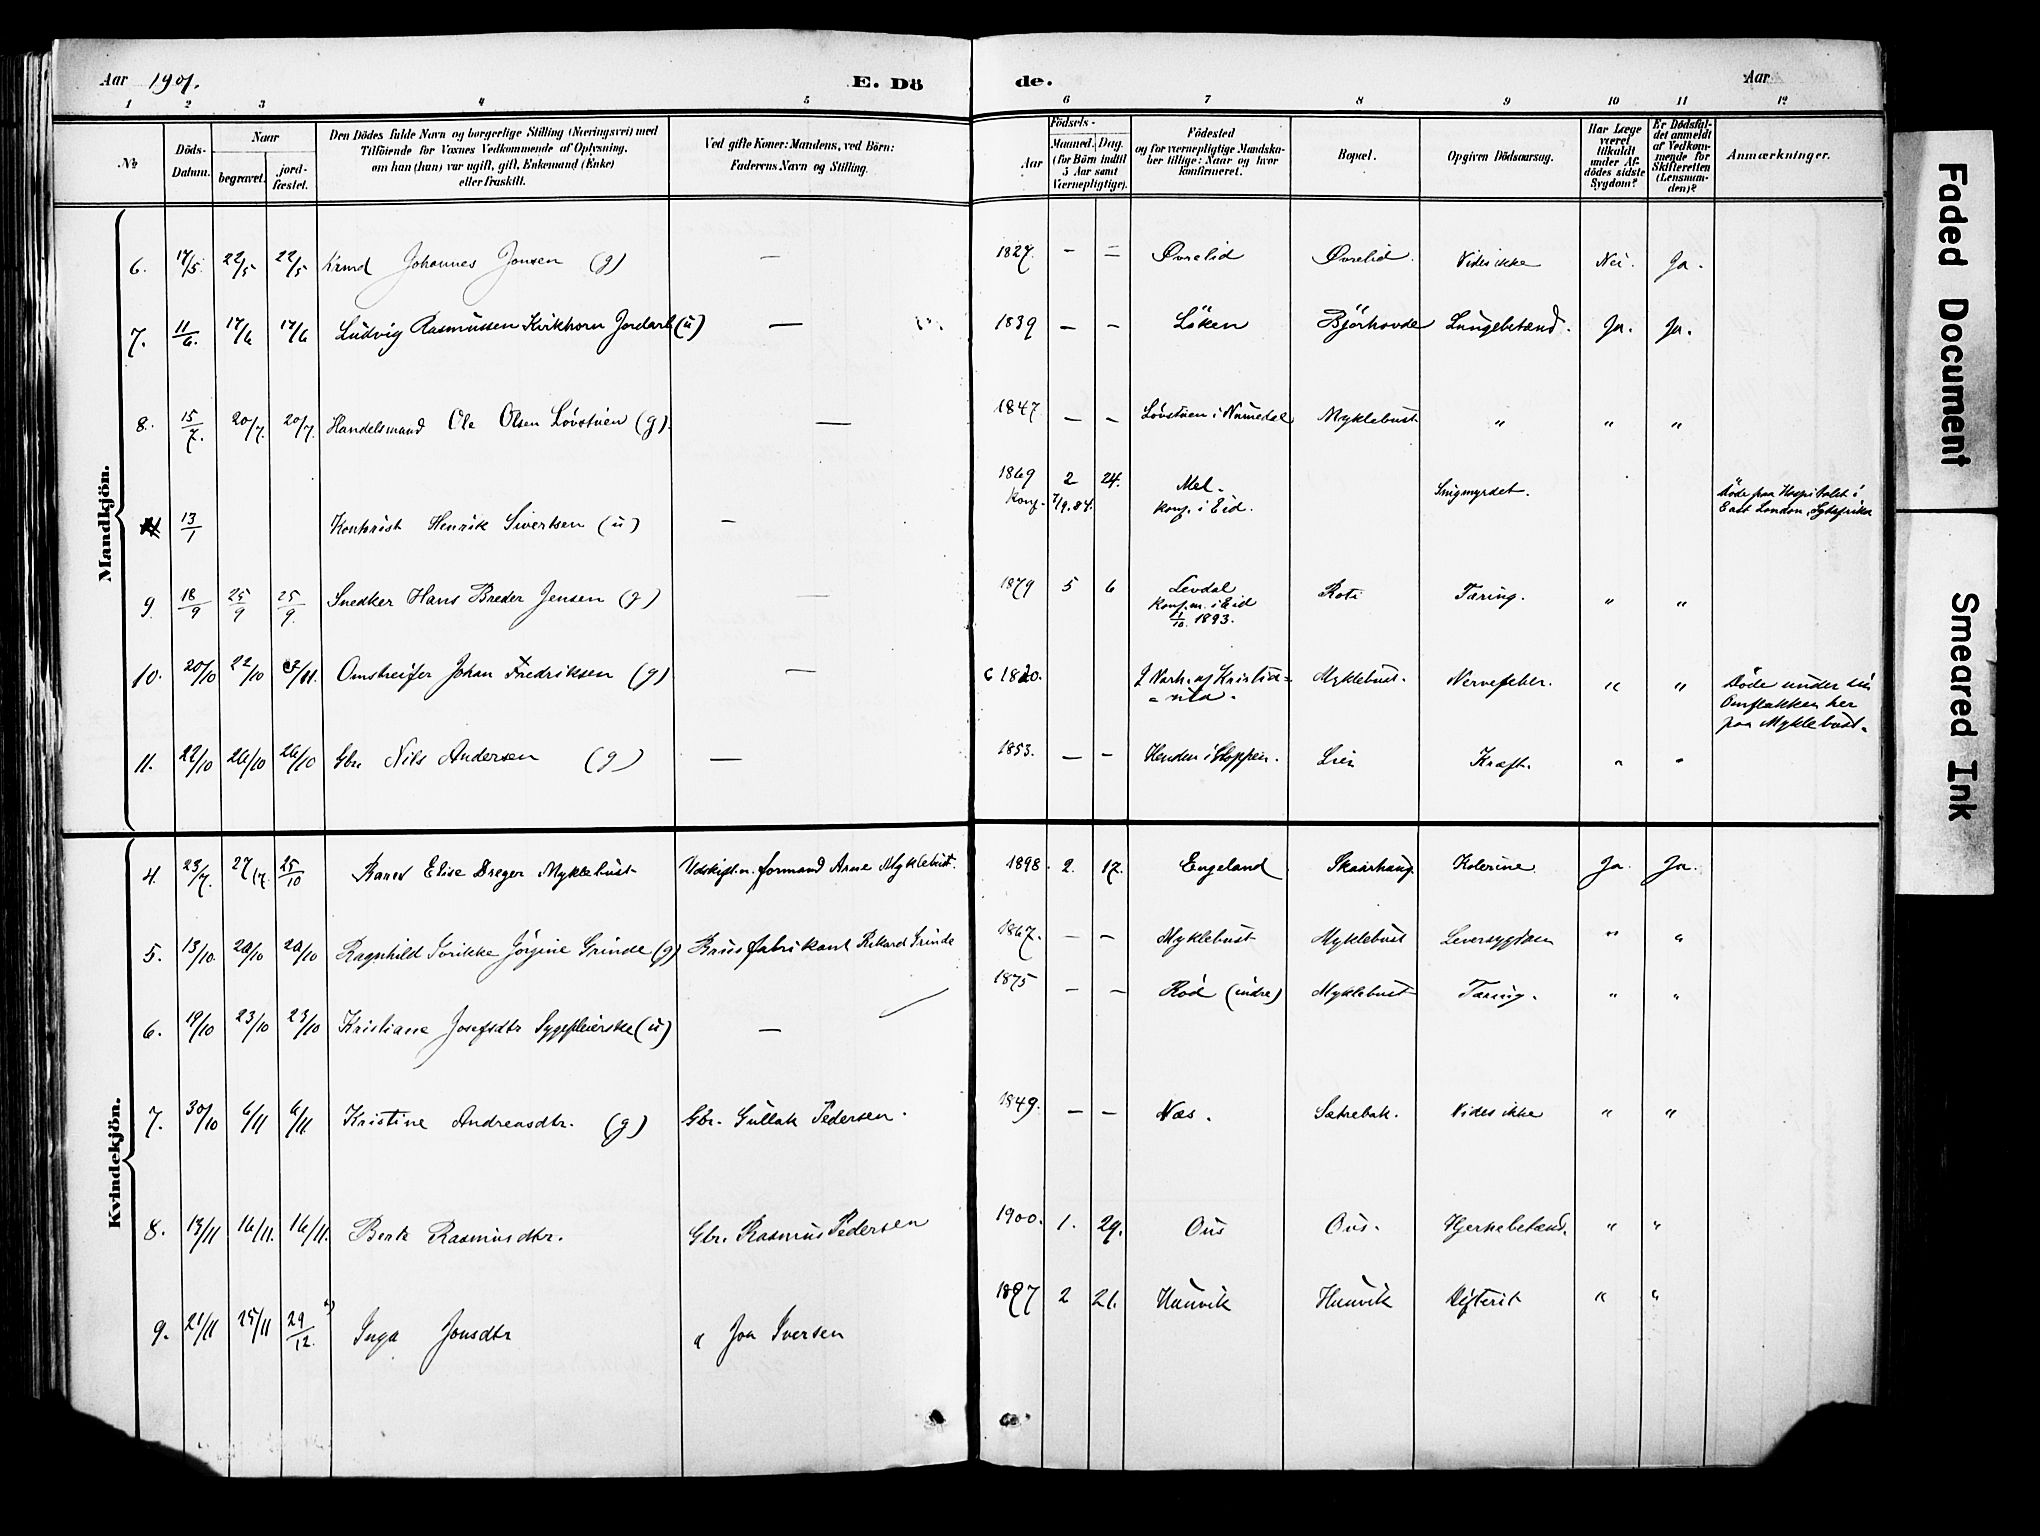 Aar 1901. E. Dö de. Aar
1 2 3 4 5 6 7 8 9 10 11 12
No
Döds-Datum.
Naar
begravet.
jord-fæstet.
Den Dödes fulde Navn og borgerlige Stilling (Næringsvei) med
Tilföiende for Voxnes Vedkommende af Oplysning,
om han (hun) var ugift, gift, Enkemand (Enke)
eller fraskilt.
Ved gifte Koner: Mandens, ved Börn:
Faderens Navn og Stilling.
Födsels-
Aar
Maaned. Dag.
(for Börn indtil
5 Aar samt
Værnepligtige).
Födested
og for værnepligtige Mandska-
ber tillige: Naar og hvor
konfirmeret.
Bopæl.
Opgiven Dödsaarsag.
Har Læge
været
tilkaldt
under Af-
dödes sidste
Sygdom?
Er Dödsfal-
det anmeldt
af Vedkom-
mende for
Skifteretten
(Lensman-
den)?
Anmærkninger.
Mandkjön.
6. 17/5. 22/5 22/5 Kmd Johannes Jonsen (g) — 1827. — = Øvrelid Øvrelid. Vides ikke Nei. Ja.
7. 11/6. 17/6 17/6 Ludvig Rasmussen Kirkhorn Jordarb (u) — 1839 — — Löken Björhovde Lungebetænd. Ja. Ja.
8. 15/7. 20/7. 20/7. Handelsmand Ole Olsen Løvstuen (g). — 1847 — — Løvstuen i Numedal Myklebust " " "
13/1 Kontorist Henrik Sivertsen (u) — 1869 2 24. Mel. Snigmyrdet. Döde paa Hospitalet i
Konf. 7/9.84. konf. i Eid. East London, Sydafrika
9 18/9 25/9 25/9. Snedker Hans Breder Jensen (g) — 1879 5 6 Levdal Roti Tæring. " "
konf. i Eid
1/10. 1893.
10. 20/10 22/10 2/11. Omstreifer Johan Fredriksen (g) — c 1820. I Nærh. af Kristia= Myklebust. Nervefeber. " " Döde under sin
= nia. Omflakken her
paa Myklebust.
11. 22/10 26/10 26/10 Gbr. Nils Andersen (g) — 1853. — — Henden i Gloppen. Lien Kræft. " "
Kvindekjön.
4. 23/7. 27/7. 25/10 Karen Elise Dreger Myklebust Udskiftn. formand Arne Myklebust. 1898. 2. 17. Engeland Skaarhaug Kolerine Ja. Ja.
5. 13/10. 20/10 20/10 Ragnhild Sörikke Jörgine Grinde (g) Brusfabrikant Rikard Grinde 1867. — — Myklebust Myklebust Leversygdom " "
6. 19/10 23/10 23/10 Kristiane Josefsdtr Sygepleierske (u) — 1875 — — Röd (indre) Myklebust Tæring. " "
7. 30/10 6/11 6/11. Kristine Andreasdtr. (g) Gbr. Gullak Pedersen. 1849. — — Næs. Sætrebak. Vides ikke " "
8. 13/11 16/11. 16/11. Berte Rasmusdtr. Gbr. Rasmus Pedersen 1900. 1. 29. Ous Ous. Hjernebetænd. " "
9. 21/11 25/11 29/12. Inga Jonsdtr " Jon Iversen 1897 2 21. Hunvik Hunvik Difterit " "
Faded Document
Smeared Ink